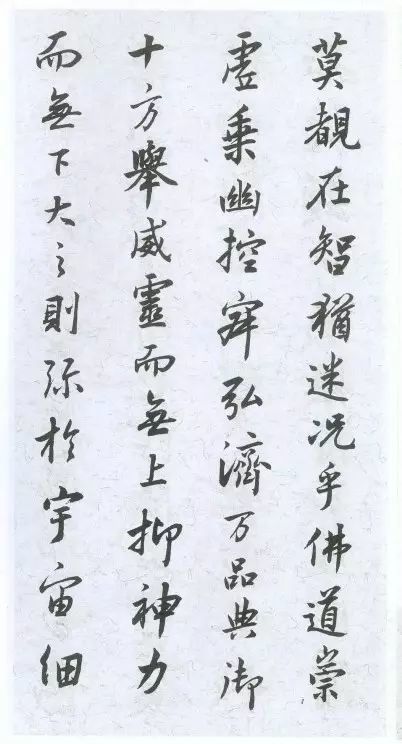 莫覩在智猶迷况乎佛道崇
虛乗幽控寂弘濟万品典御
十方舉威靈而無上抑神力
而無下大之則弥於宇宙細